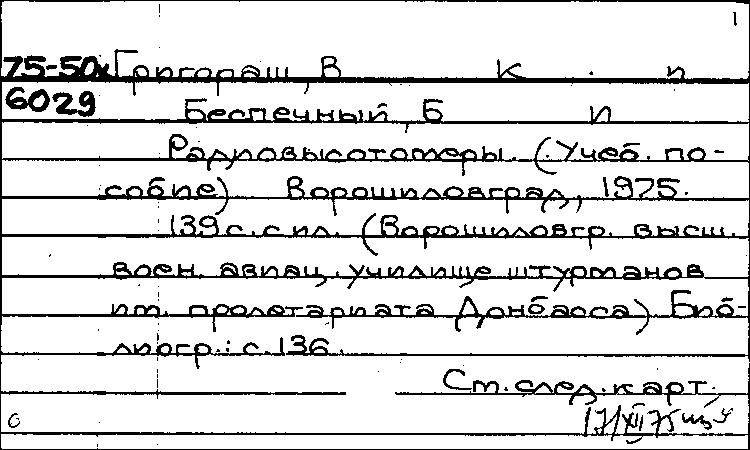 1
75-50к Григораш, В К. п
6029 Беспечный, Б И
Радиовысотомеры. (Учеб. по-
собие) Ворошиловград, 1975.
139 с. с ил. (Ворошиловгр. высш.
воен. авиац. училище штурманов
им. пролетариата Донбасса) Биб-
лиогр.: с. 136.
См. след. карт.
17/XII 75
0